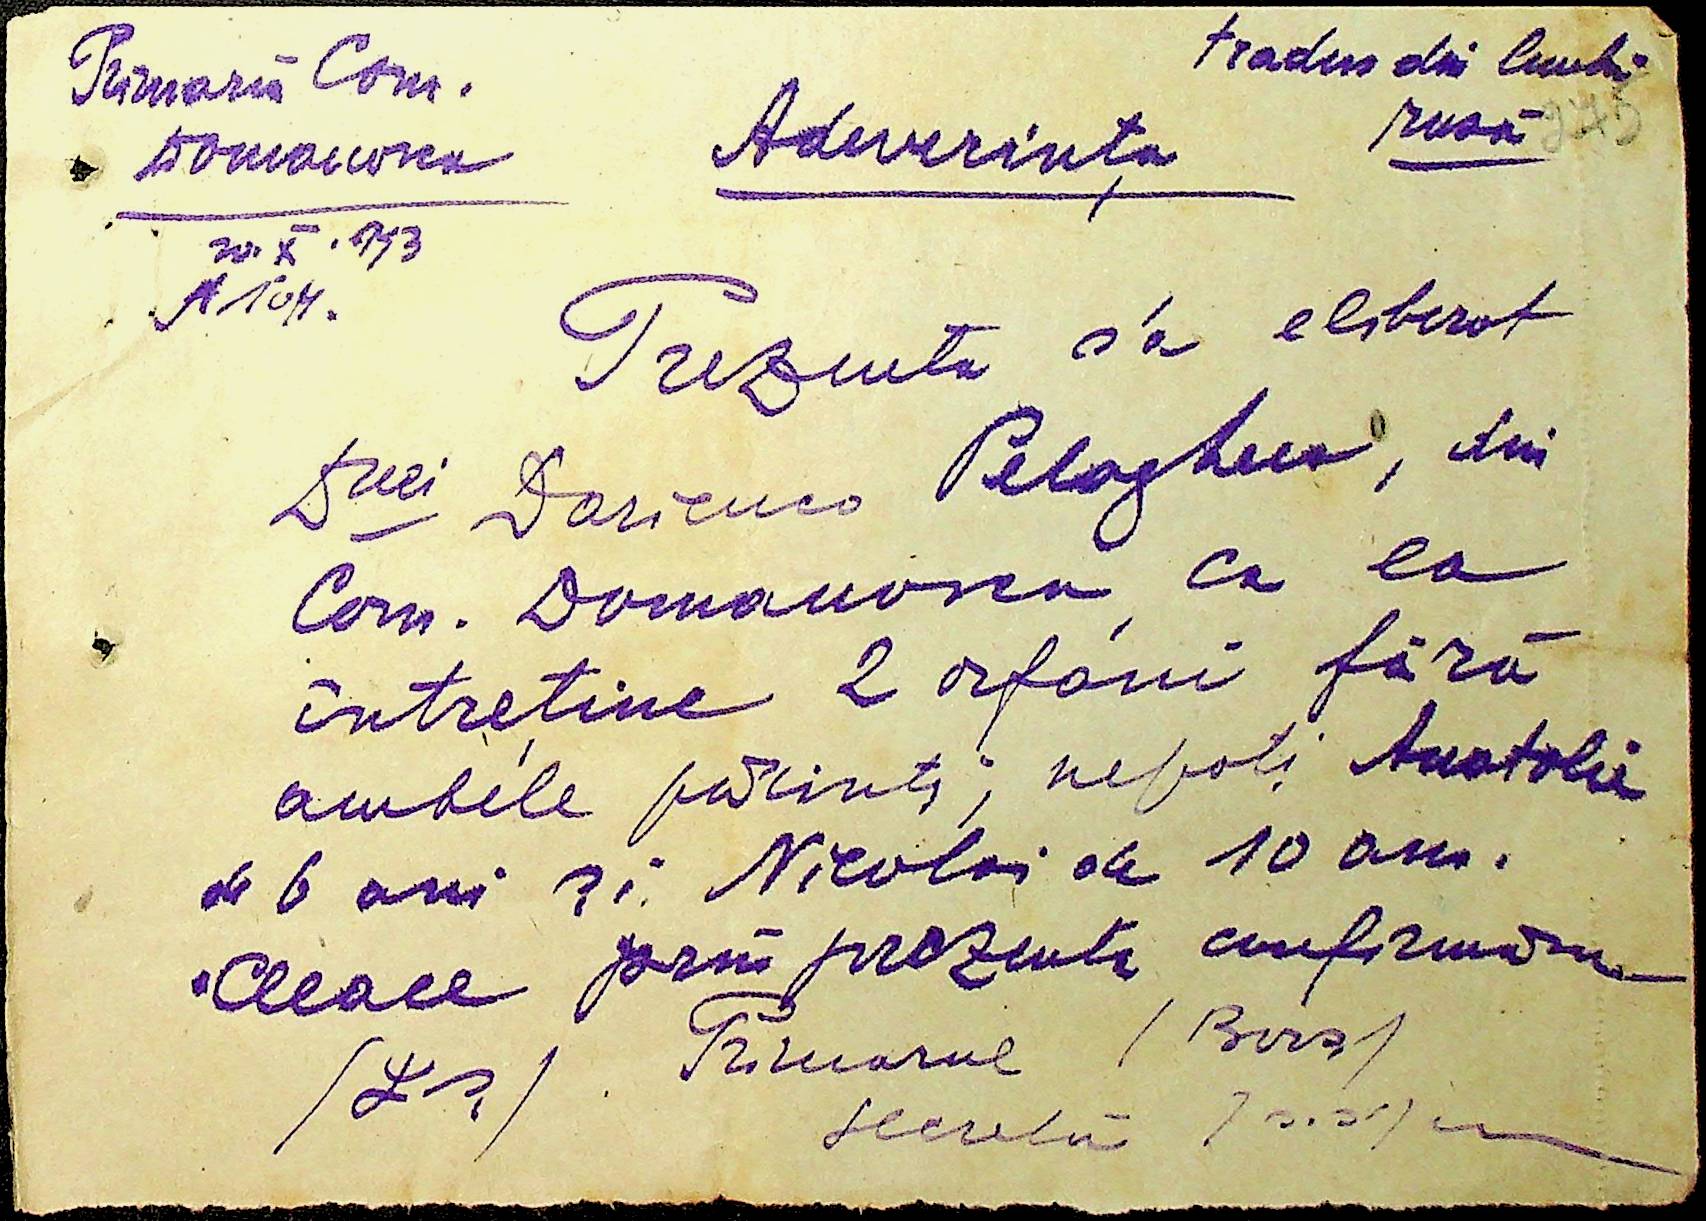 Primaria Com.
Domanovca
20. X. 943
N 104.
tradus din limba
rusă
275
Adeverința
Prezenta s'a eliberat
Dnei Darienco Pelaghea, din
Com. Domanovca, ca ea
întreține 2 orfani fără
ambele părinți, nepoți Anatolie
de 6 ani și Nicolai de 10 ani.
Ceeace prin prezenta confirmăm
/L.S./ Primarul /Bors/
Secretar /s.s/